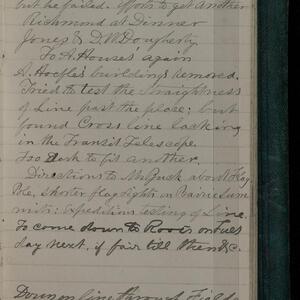 but he failed. Yours to get another
Richmond at Dinner
Jones & D.W. Dougherty
To A. Houses' again
A. Hoefle's building removed.
Tried to test the straightness
of Line past the place; but
found Cross line lacking
in the Transit Telescope.
Too Dark to Git another.
Directions to Mr. about Flag
shorter flag sights on Prairie Sum
mits: Expeditious testing of Line.
To come down to Room on Tues
day next, if fair till then &c.
Down on line through Fields